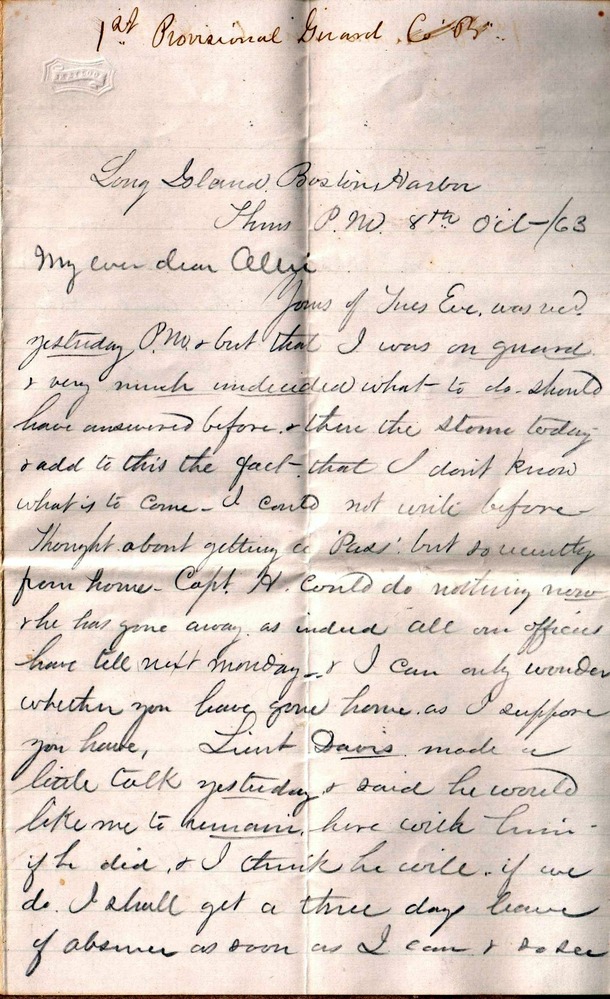 1st Provisional Guard. Co
Long Island, Boston Harbor
Thurs P.M. 8th Oct-/63
My ever dear Allie
Yours of Tues Eve. was rec'd
yesterday P.M. & but that I was on guard
& very much undecided what to do. should
have answered before. & then the storm today
& add to this the fact that I don't know
what is to come - I could not write before -
Thought about getting a 'Pass' but so recently
from home - Capt. H. could do nothing now
& he has gone away. as indeed all our officers
have till next Monday - & I can only wonder
whether you have gone home. as I suppose
you have, Lieut Davis made a
little talk yesterday & said he would
like me to remain here with him -
if he did, & I think he will. if we
do. I shall get a three day leave
of absence as soon as I can & so see